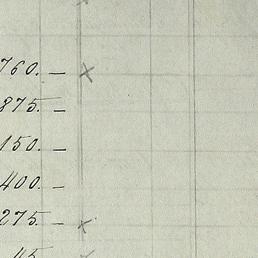 760. — ×
875. —
150. —
400. —
275. — ×
45. ×